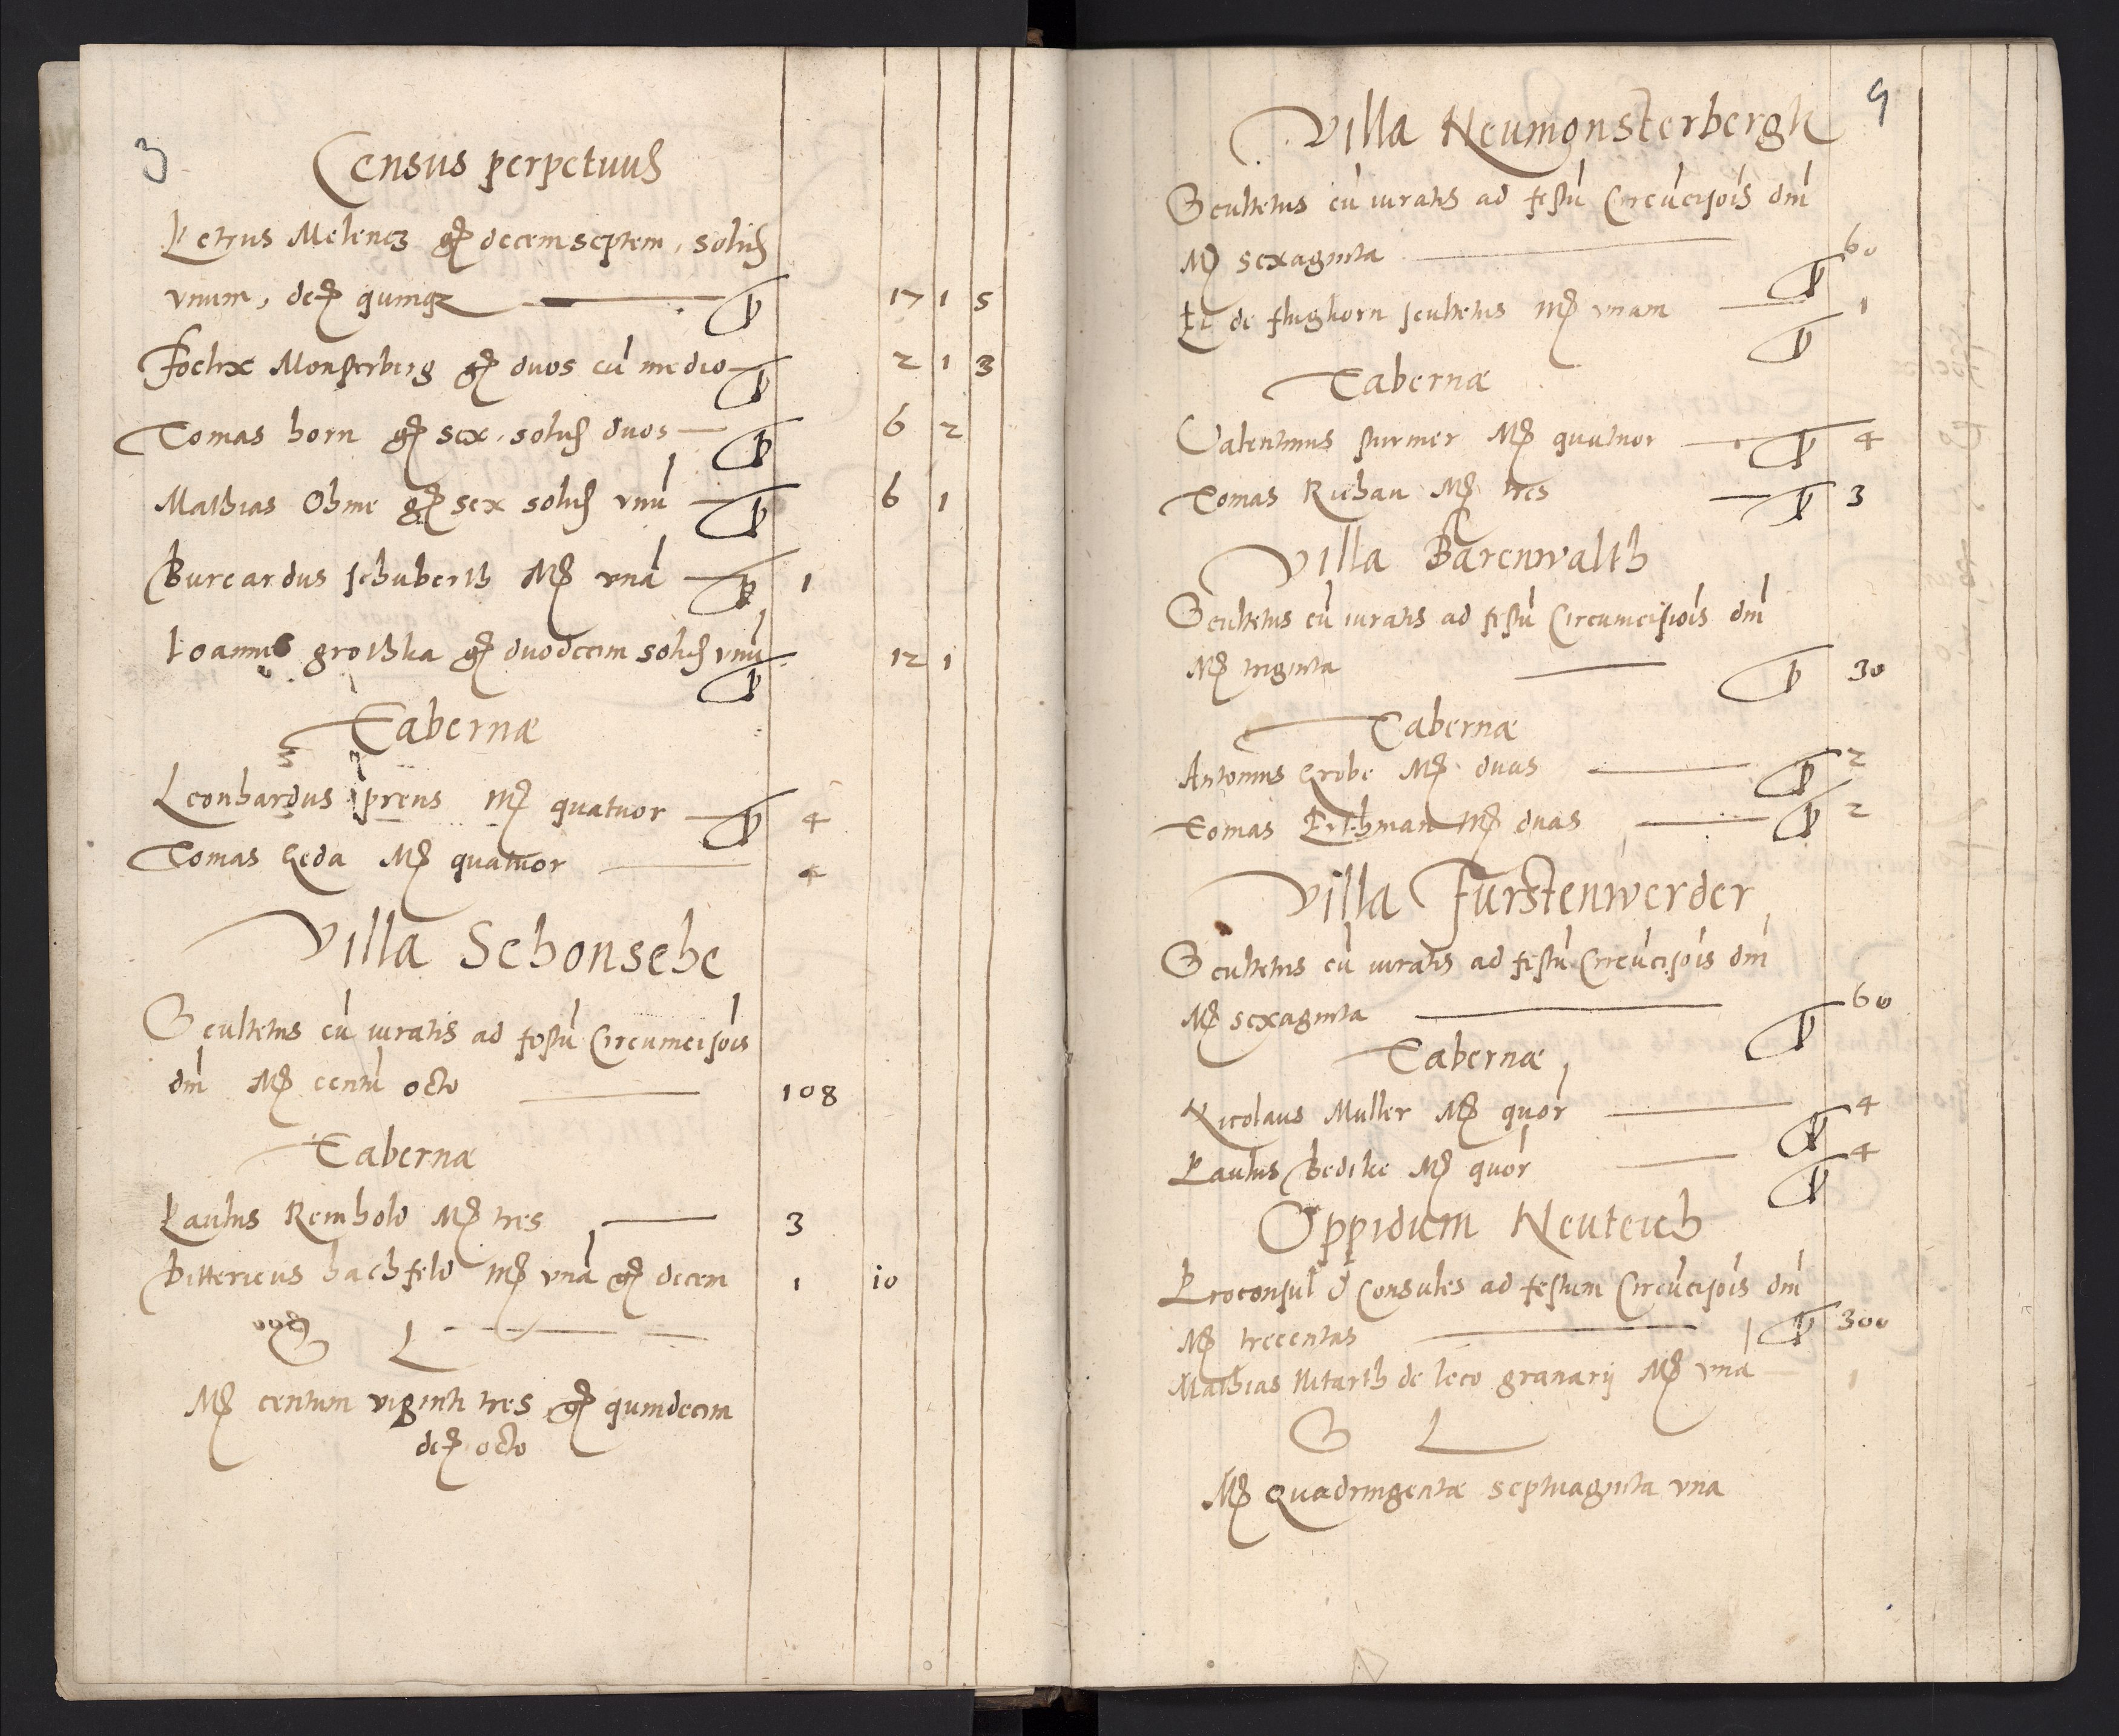 3
Census perpetuus
Petrus Melencz gr decem septem, solid
unum, den quinqz ꝑ 17 1 5
Foelix Monsterberg gr duos cū medio ꝑ 2 1 3
Tomas horn gr sex, solid duos ꝑ 6 2
Mathias Ohme gr sex solid vnū ꝑ 6 1
Burcardus schuberth Mr vnā ꝑ 1
Ioannes grothka gr duodecim solid vnū ꝑ 12 1
Tabernæ
Leonhardus iprens Mr quatuor ꝑ 4
Tomas Leda Mr quatuor 4
Villa Schonsehe
Scultetus cū iuratis ad festū Circumcisiōis
dm̄ Mr centū octo 108
Tabernæ
Paulus Reinhold Mr tres 3
Dittericus hachfeld Mr vnā gr decem 1 10
L
Mr centum viginti tres gr quindecim
den octo
9
Villa Neumonsterbergk
Scultetus cū iuratis ad festū Circūcisiōis dm̄
Mr sexaginta ꝑ 60
Et de flughorn scultetus Mr vnam ꝑ 1
Tabernæ
Valentinus sturmer Mr quatuor ꝑ 4
Tomas Richau Mr tres ꝑ 3
Villa Barenwalth
Scultetus cū iuratis ad festū Circumcisiōis dm̄
Mr triginta ꝑ 30
Tabernæ
Antonius Grobe Mr duas ꝑ 2
Tomas Erthman Mr duas ꝑ 2
Villa Furstenwerder
Scultetus cū iuratis ad festū Circūcisiōis dm̄
Mr sexaginta ꝑ 60
Tabernæ
Nicolaus Muller Mr quōr ꝑ 4
Paulus Bedike Mr quōr ꝑ 4
Oppidum Neuteich
Proconsul & Consules ad festum Circūcisiōis dm̄
Mr trecentas ꝑ 300
Mathias Nitarth de loco granarij Mr vnā 1
S L
Mr Quadringentæ septuaginta vna